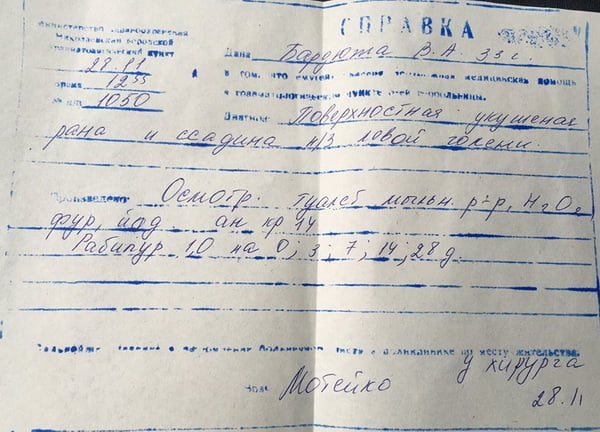 СПРАВКА
Министерство здравоохранения
Николаевский городской
травматологический пункт
28.11
время 1235
№ 1050
Дана Бардюжа В.А 33 г.
в том, что ему(ей) медицинская помощь
в травматологическом пункте больницы.
Диагноз Поверхностная укушеная
рана и ссадина н/3 левой голени.
Произведено Осмотр. туалет мыльн. р-р, H2O2,
фур, йод ан кр 14
Рабипур 1,0 на 0; 3; 7; 14; 28 д.
Дальнейшее в поликлинике по месту жительства.
у хирурга
Мотейко
28.11